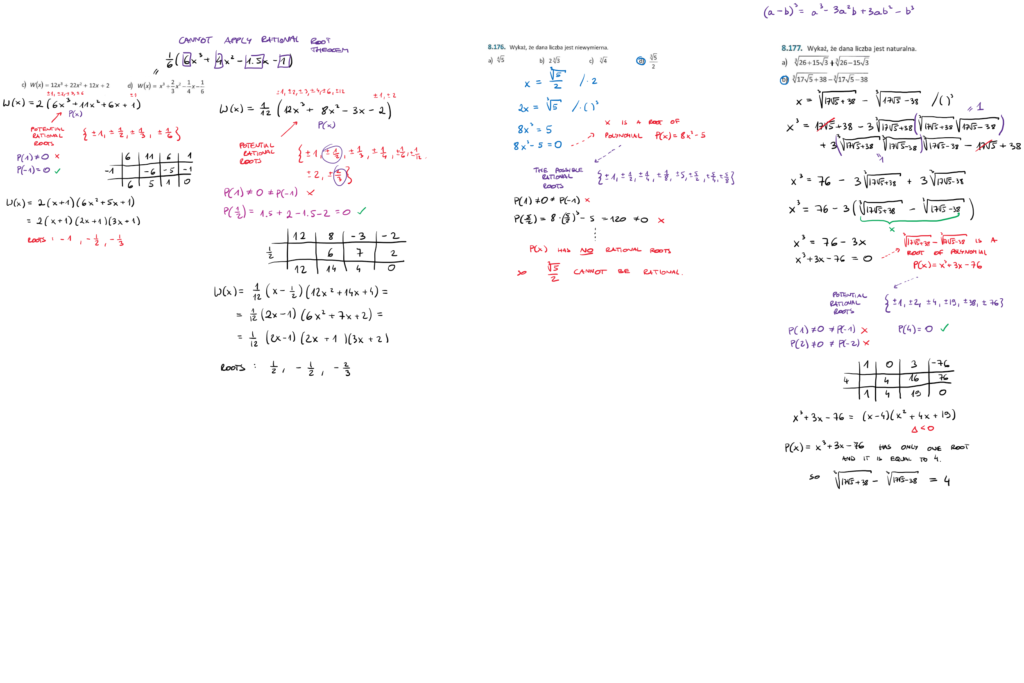 CANNOT APPLY RATIONAL ROOT THEOREM
= 1/6 (6x³ + 4x² - 1.5x - 1)
c) W(x) = 12x³ + 22x² + 12x + 2
d) W(x) = x³ + 2/3 x² - 1/4 x - 1/6
W(x) = 2(6x³ + 11x² + 6x + 1)
P(x)
POTENTIAL RATIONAL ROOTS {±1, ±1/2, ±1/3, ±1/6}
P(1) ≠ 0 ×
P(-1) = 0 ✓
6 11 6 1
-1 -6 -5 -1
6 5 1 0
W(x) = 2(x+1)(6x² + 5x + 1)
= 2(x+1)(2x+1)(3x+1)
ROOTS : -1, -1/2, -1/3
W(x) = 1/12 (12x³ + 8x² - 3x - 2)
±1, ±2
P(x)
POTENTIAL RATIONAL ROOTS
±2, ±2/3}
P(1) ≠ 0 ≠ P(-1) ×
P(1/2) = 1.5 + 2 - 1.5 - 2 = 0 ✓
12 8 -3 -2
1/2 6 7 2
12 14 4 0
W(x) = 1/12 (x - 1/2)(12x² + 14x + 4) =
= 1/12 (2x-1)(6x² + 7x + 2) =
= 1/12 (2x-1)(2x+1)(3x+2)
ROOTS : 1/2, -1/2, -2/3
8.176. Wykaż, że dana liczba jest niewymierna.
a) ∛5 b) 2∛3 c) ∛4 d) ∛5/2
x = ∛5/2 /·2
2x = ∛5 /( )³
8x³ = 5
8x³ - 5 = 0
x IS A ROOT OF
POLYNOMIAL P(x) = 8x³ - 5
THE POSSIBLE RATIONAL ROOTS {±1, ±1/2, ±1/4, ±1/8, ±5, ±5/2, ±5/4, ±5/8}
P(1) ≠ 0 ≠ P(-1) ×
P(5/2) = 8·(5/2)³ - 5 = 120 ≠ 0 ×
P(x) HAS NO RATIONAL ROOTS
SO ∛5/2 CANNOT BE RATIONAL.
(a-b)³ = a³ - 3a²b + 3ab² - b³
8.177. Wykaż, że dana liczba jest naturalna.
a) ∛(26+15√3) + ∛(26-15√3)
b) ∛(17√5+38) - ∛(17√5-38)
x = ∛(17√5+38) - ∛(17√5-38) /( )³
= 1
x³ = 17√5+38 - 3∛(17√5+38) (∛(17√5+38) ∛(17√5-38))
+ 3(∛(17√5+38) ∛(17√5-38)) ∛(17√5-38) - 17√5 + 38
1
x³ = 76 - 3∛(17√5+38) + 3∛(17√5-38)
x³ = 76 - 3(∛(17√5+38) - ∛(17√5-38))
x
x³ = 76 - 3x
x³ + 3x - 76 = 0
∛(17√5+38) - ∛(17√5-38) IS A
ROOT OF POLYNOMIAL
P(x) = x³ + 3x - 76
POTENTIAL RATIONAL ROOTS {±1, ±2, ±4, ±19, ±38, ±76}
P(1) ≠ 0 ≠ P(-1) × P(4) = 0 ✓
P(2) ≠ 0 ≠ P(-2) ×
1 0 3 -76
4 4 16 76
1 4 19 0
x³ + 3x - 76 = (x-4)(x² + 4x + 19)
Δ < 0
P(x) = x³ + 3x - 76 HAS ONLY ONE ROOT
AND IT IS EQUAL TO 4.
SO ∛(17√5+38) - ∛(17√5-38) = 4